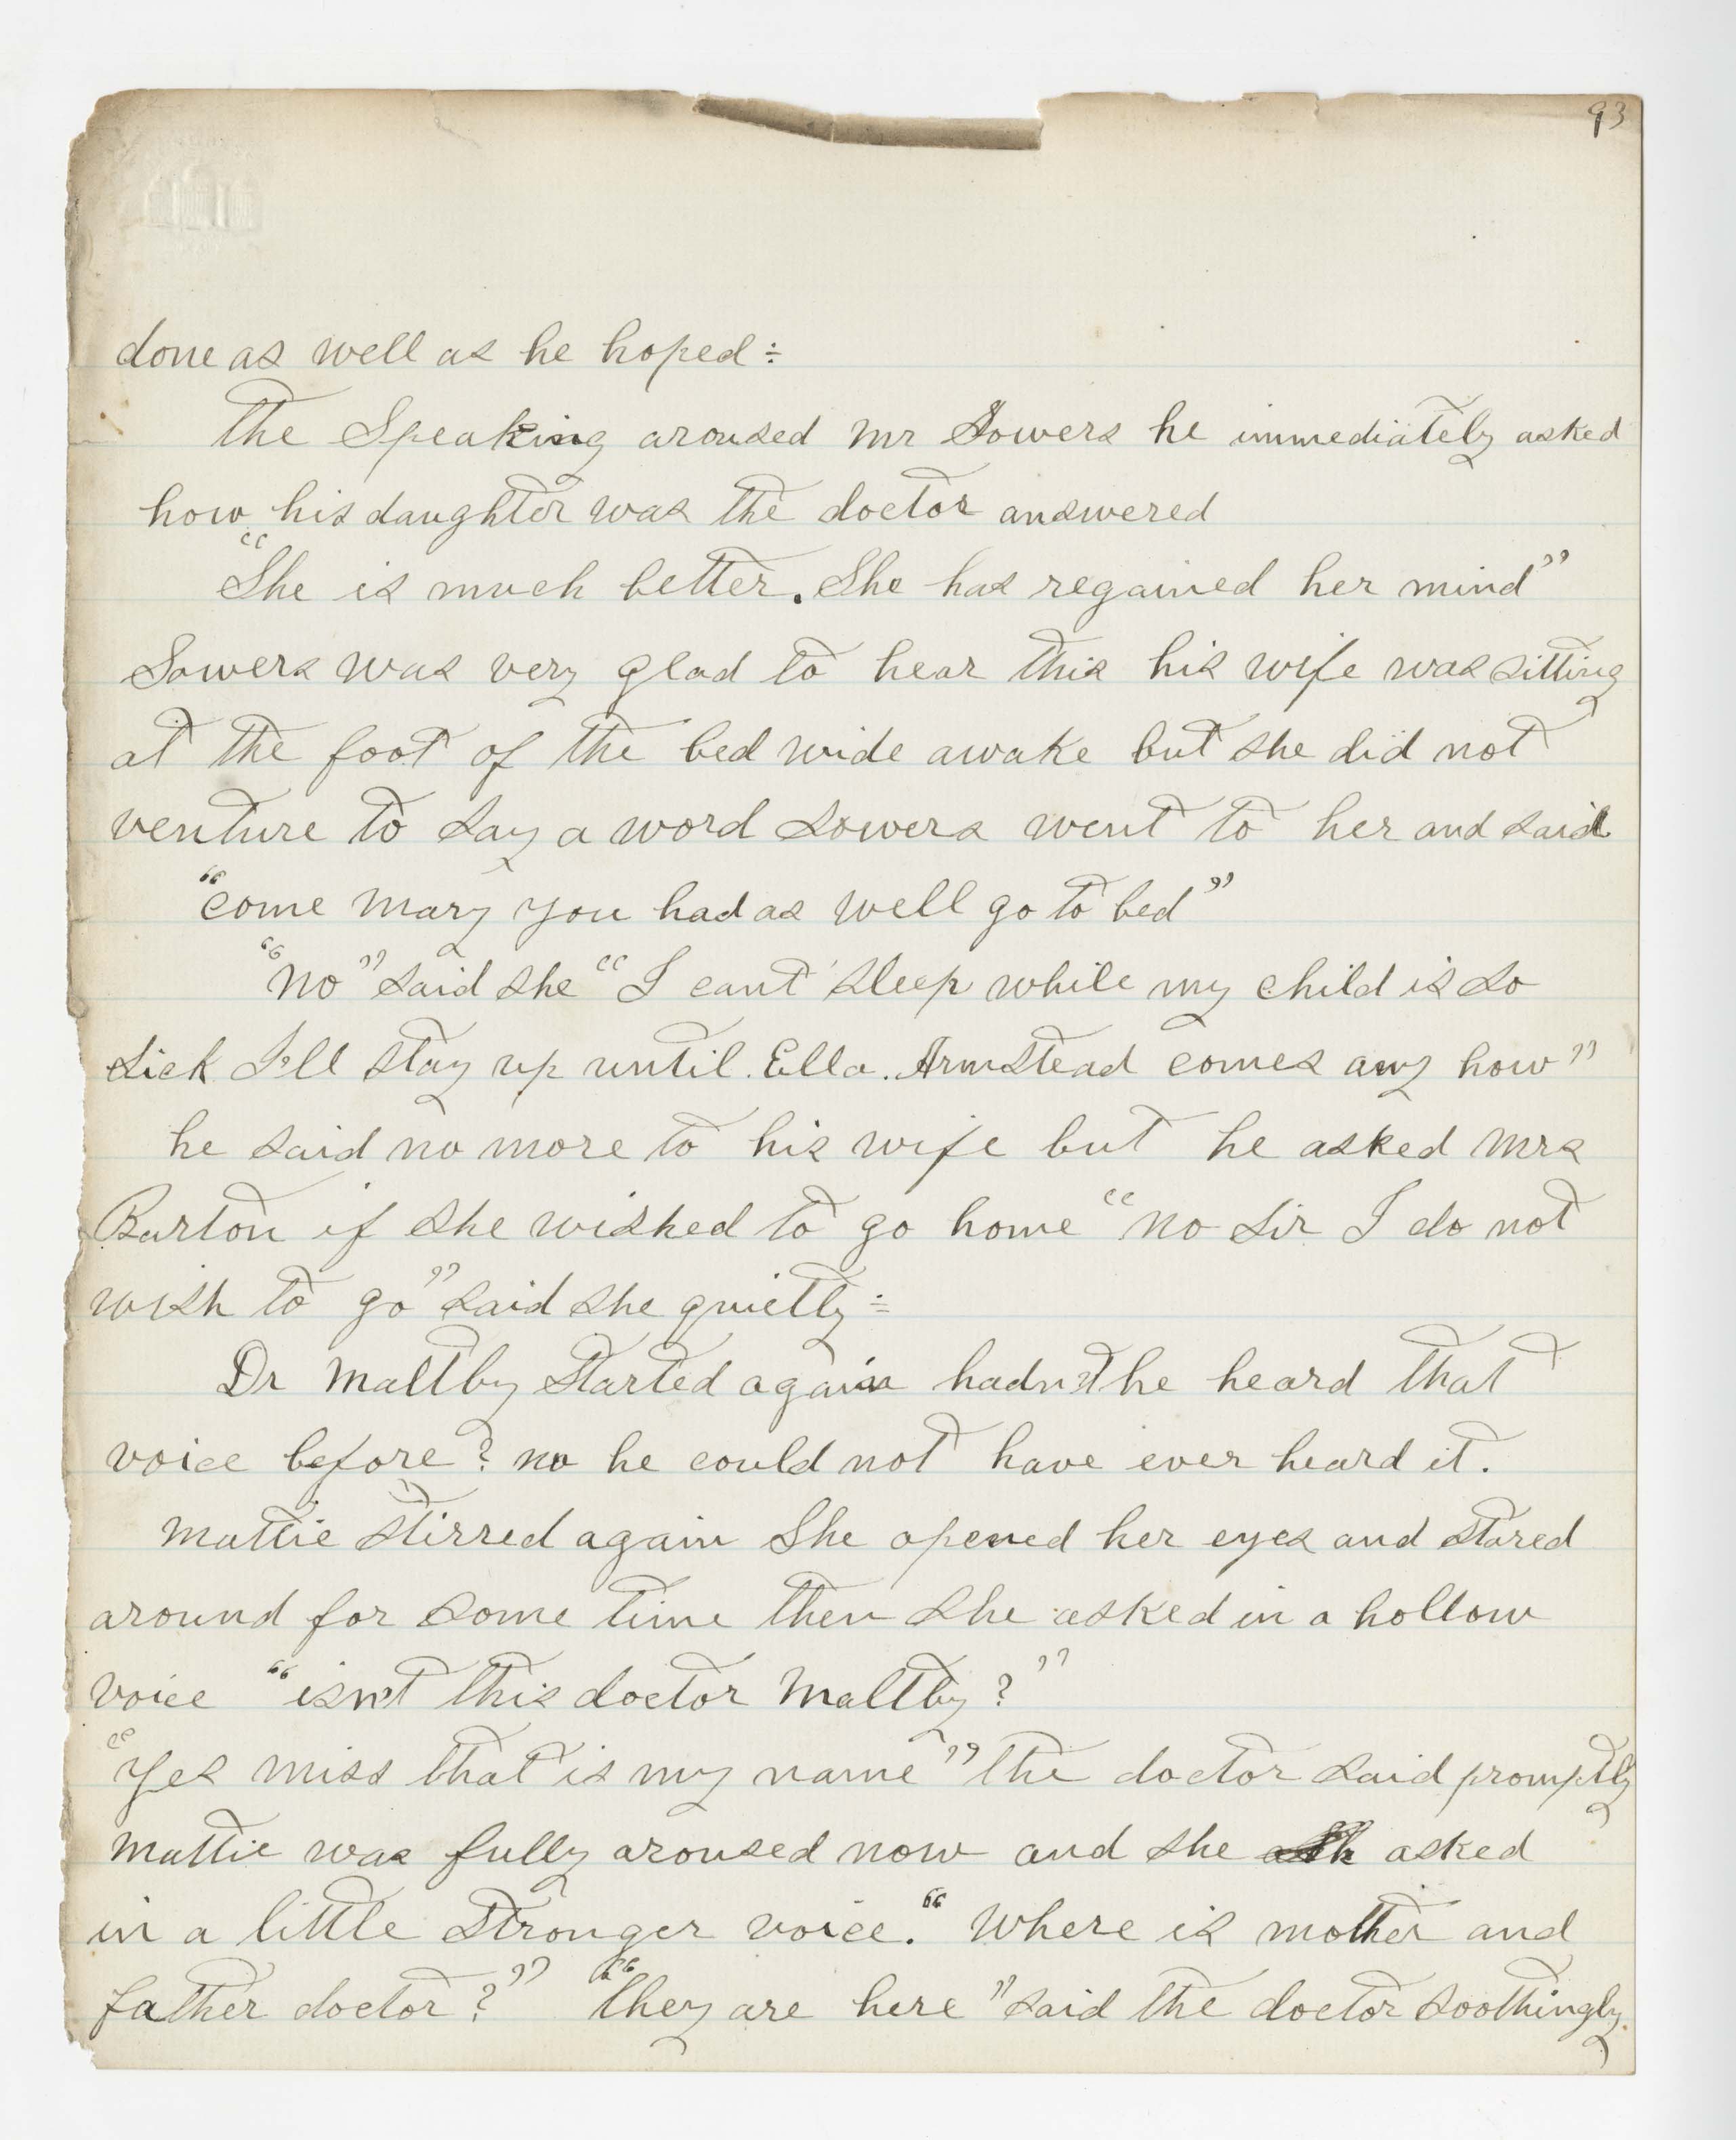 93
done as well as he hoped÷
The Speaking aroused mr Sowers he immediately asked
how his daughter was the doctor answered
"She is much better. She has regained her mind"
Sowers was very glad to hear this his wife was sitting
at the foot of the bed wide awake but she did not
venture to say a word sowers went to her and said
"come mary you had as well go to bed"
"no" said she "I cant sleep while my child is so
sick I'll stay up until. Ella. Armstead comes any how"
he said no more to his wife but he asked mrs
Burton if she wished to go home "no sir I do not
wish to go" said she quietly÷
Dr maltby started again hadn't he heard that
voice before? no he could not have ever heard it.
mattie stirred again She opened her eyes and stared
around for some time then she asked in a hollow
voice "isn't this doctor maltby?"
"Yes miss that is my name" the doctor said promptly
mattie was fully aroused now and she asked
in a little stronger voice. "where is mother and
father doctor?" "they are here" said the doctor soothingly.